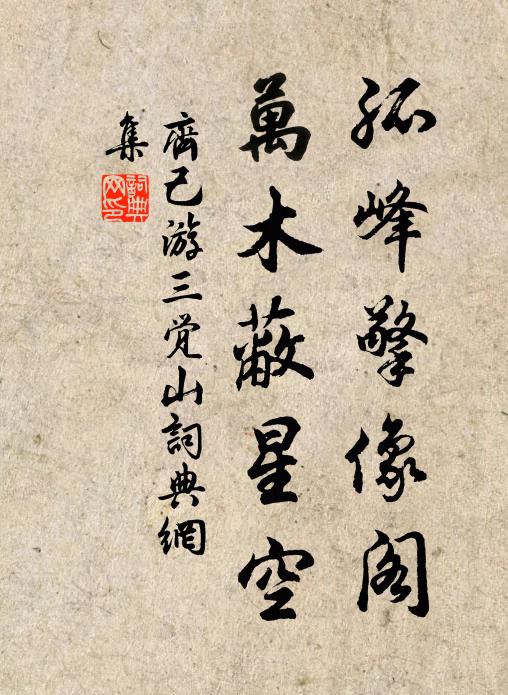 孤峰擎像阁
萬木蔽星空
齊己游三觉山詞典網
集
詞典网印